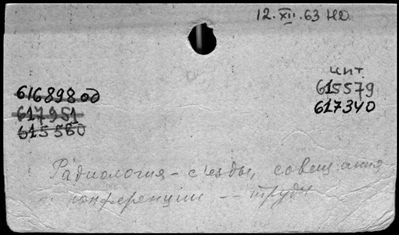 12.XII.63 НО
чит.
616898 од
615579
617951
617340
615560
Радиология - съезды, совещания
конференции -- труды